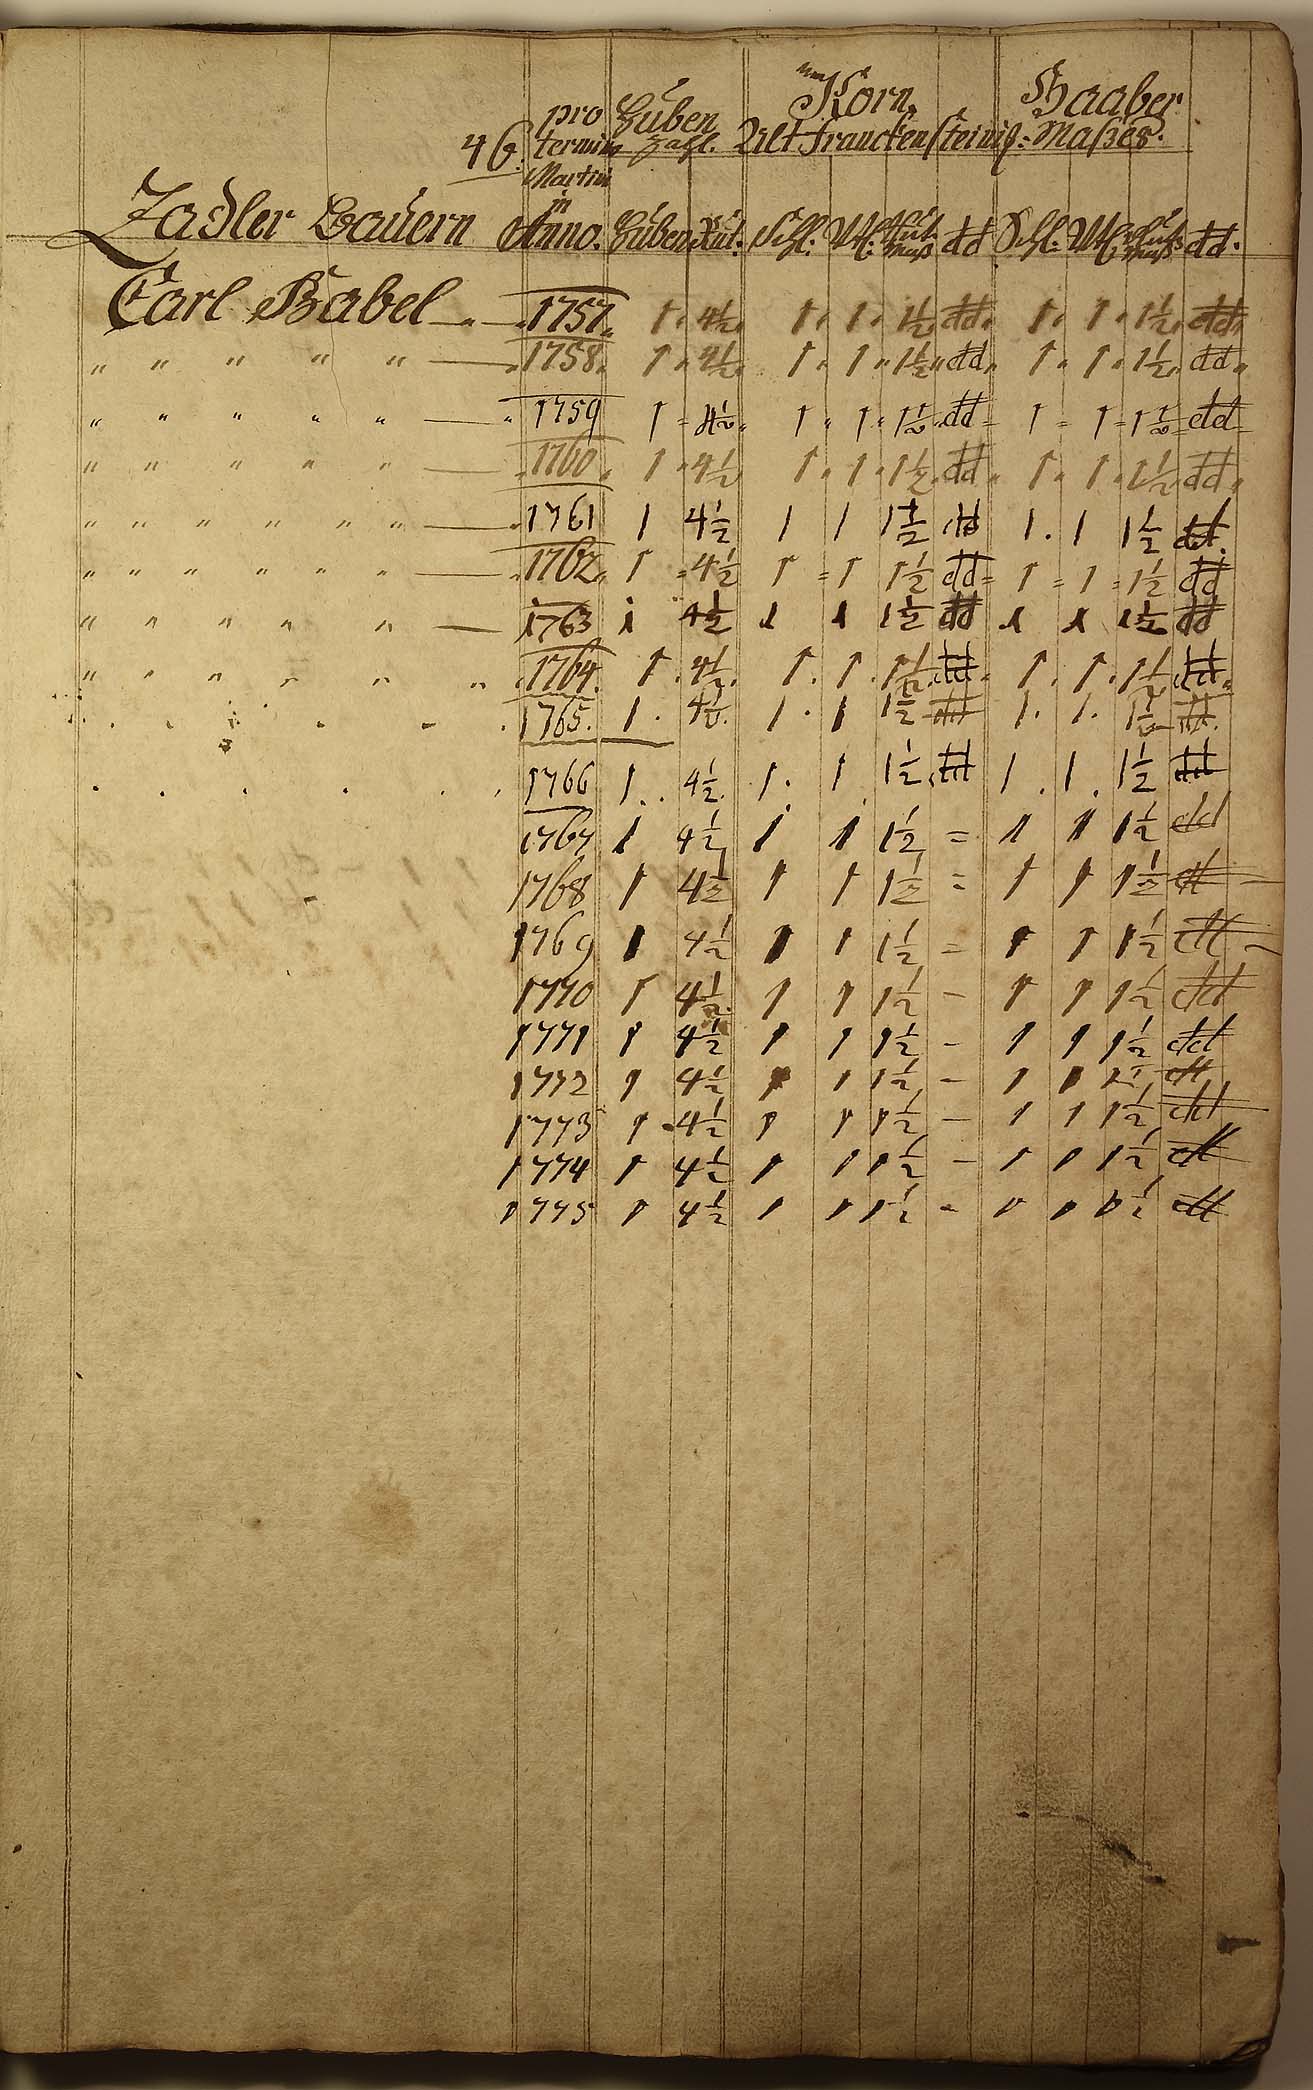 pro Huben Korn Haaber
46. termin Zahl. Alt franckensteinig: Maßes.
Martini
in
Zadler Bauern Anno. Huben Rut. Schl. Vtl. Maß dd Schl. Vtl. Maß dd.
Carl Babel 1757. 1. 4½. 1. 1. 1½. dd. 1. 1. 1½. dd.
" " " " 1758. 1. 4½. 1. 1. 1½. dd. 1. 1. 1½. dd.
" " " " " 1759 1 = 4½. 1. 1. 1½. dd = 1 = 1 = 1½ = dd
" " " " " 1760. 1. 4½ 1. 1. 1½. dd. 1. 1. 1½. dd.
" " " " " " 1761 1 4½ 1 1 1½ dd 1. 1 1½ dd.
" " " " " " 1762. 1 = 4½ 1 = 1 1½ dd = 1 = 1 = 1½ dd
" " " " " 1763 1 4½ 1 1 1½ dd 1 1 1½ dd
" " " " " " 1764. 1. 4½. 1. 1. 1½. dd. 1. 1. 1½. dd.
1765. 1. 4½. 1. 1 1½ dd 1. 1. 1½ dd.
1766 1. 4½. 1. 1 1½. dd 1. 1. 1½ dd
1767 1 4½ 1 1 1½ = 1 1 1½ dd
1768 1 4½ 1 1 1½ = 1 1 1½ dd
1769 1 4½ 1 1 1½ = 1 1 1½ dd
1770 1 4½. 1 1 1½ - 1 1 1½ dd
1771 1 4½ 1 1 1½ - 1 1 1½ dd
1772 1 4½ 1 1 1½ - 1 1 1½ dd
1773 1 4½ 1 1 1½ - 1 1 1½ dd
1774 1 4½ 1 1 1½ - 1 1 1½ dd
1775 1 4½ 1 1 1½ - 1 1 1½ dd